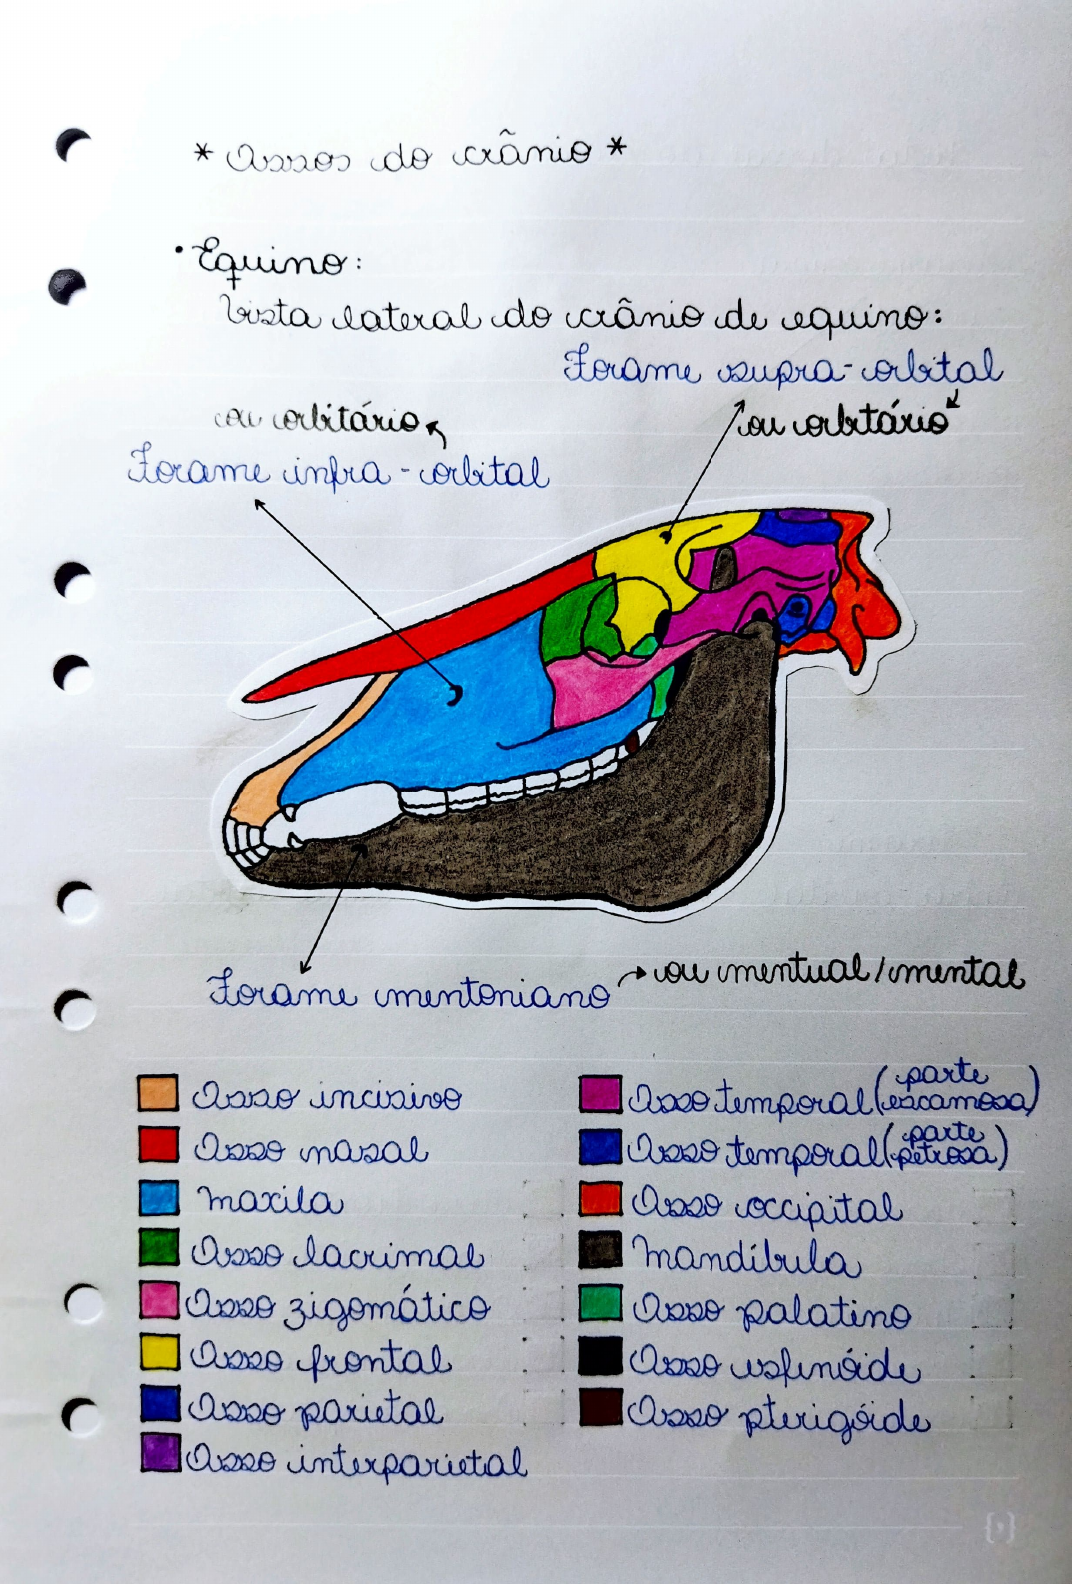 * Ossos do crânio *
• Equino:
Vista lateral do crânio de equino:
Forame supra-orbital
ou orbitário
ou orbitário
Forame infra-orbital
Forame mentoniano
ou mentual/mental
Osso incisivo
Osso nasal
Maxila
Osso lacrimal
Osso zigomático
Osso frontal
Osso parietal
Osso interparietal
Osso temporal (parte escamosa)
Osso temporal (parte petrosa)
Osso occipital
Mandíbula
Osso palatino
Osso esfinóide
Osso pterigóide